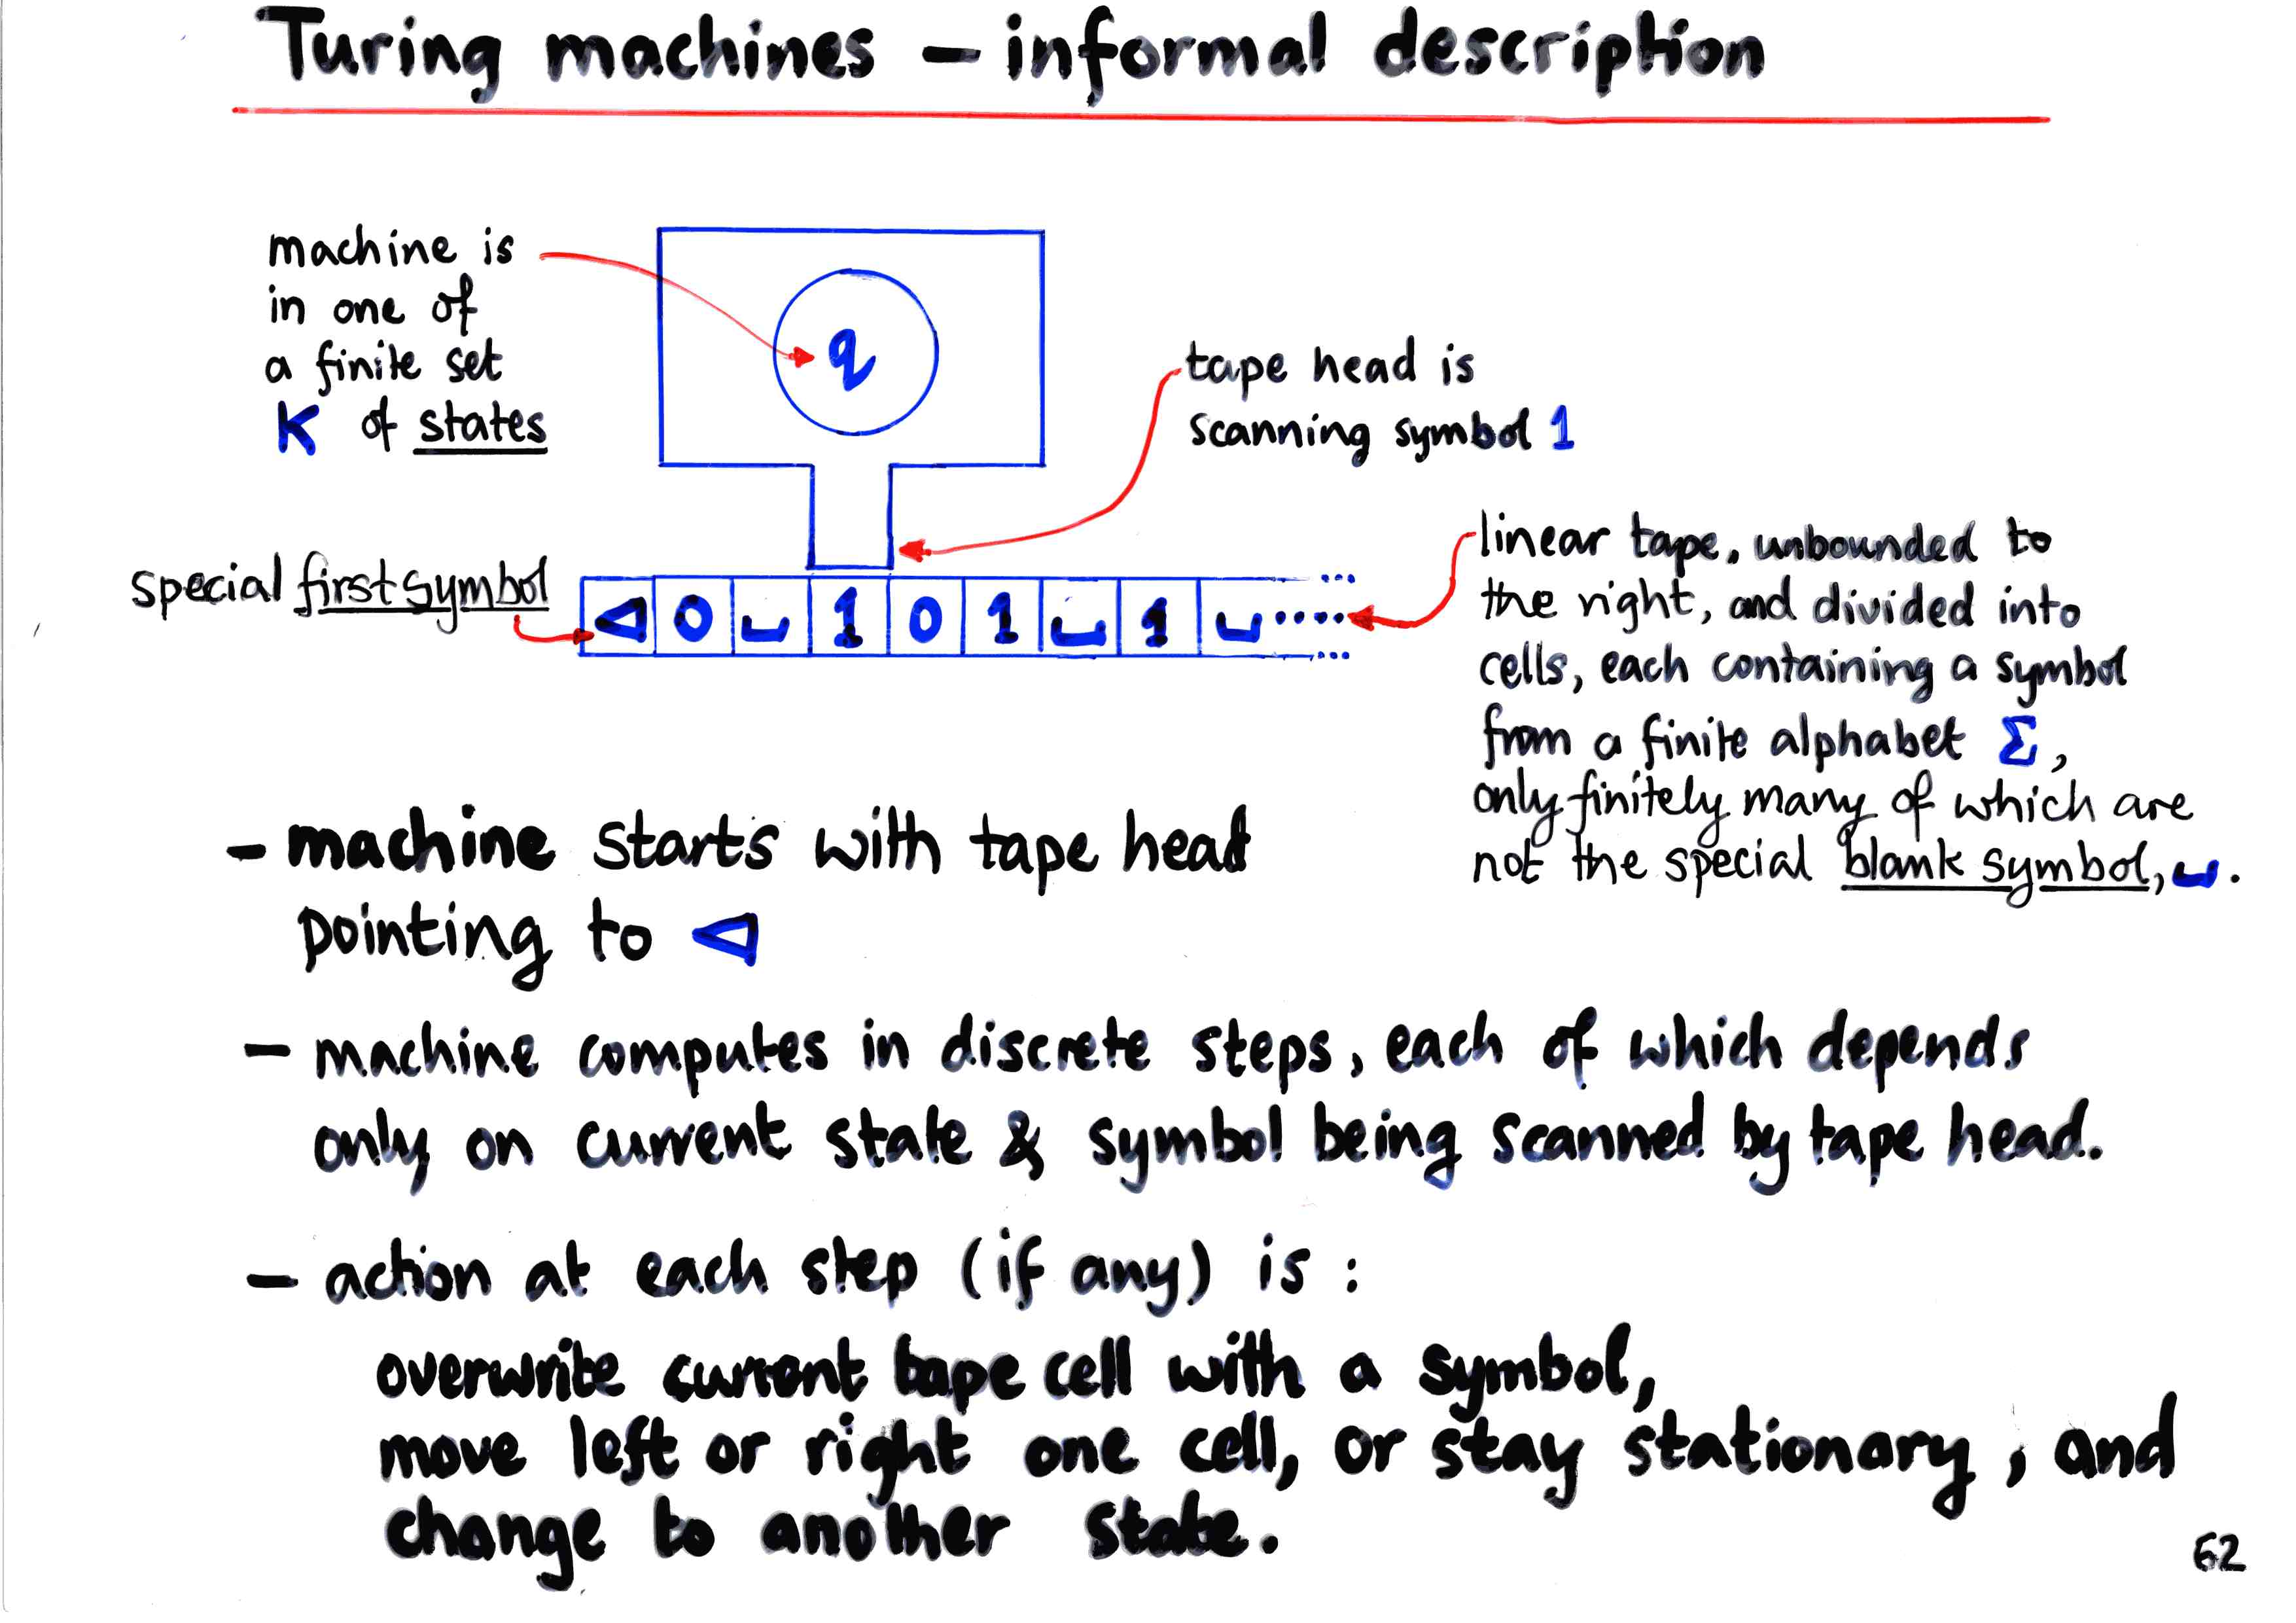 Turing machines – informal description
machine is
in one of
a finite set
K of states
q
tape head is
scanning symbol 1
special first symbol
◁ 0 ␣ 1 0 1 ␣ 1 ␣ .....
linear tape, unbounded to
the right, and divided into
cells, each containing a symbol
from a finite alphabet Σ,
only finitely many of which are
not the special blank symbol, ␣.
– machine starts with tape head
pointing to ◁
– machine computes in discrete steps, each of which depends
only on current state & symbol being scanned by tape head.
– action at each step (if any) is :
overwrite current tape cell with a symbol,
move left or right one cell, or stay stationary, and
change to another state.
62